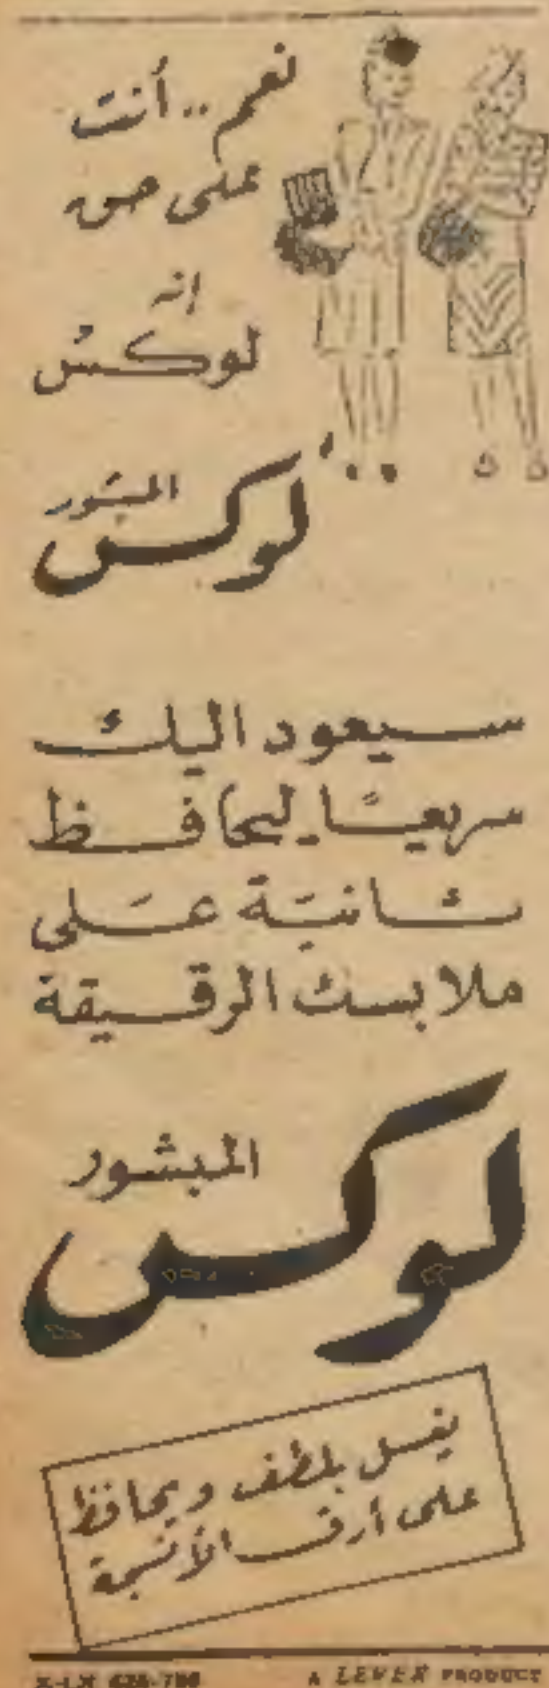 نعم .. أنت
على حق
إنه
لوكس
المبشور
لوكس
سيعود اليك
سريعًا ليحافظ
ثانية على
ملابسك الرقيقة
المبشور
لوكس
يغسل بلطف ويحافظ
على أرق الأنسجة
A LEVER PRODUCT